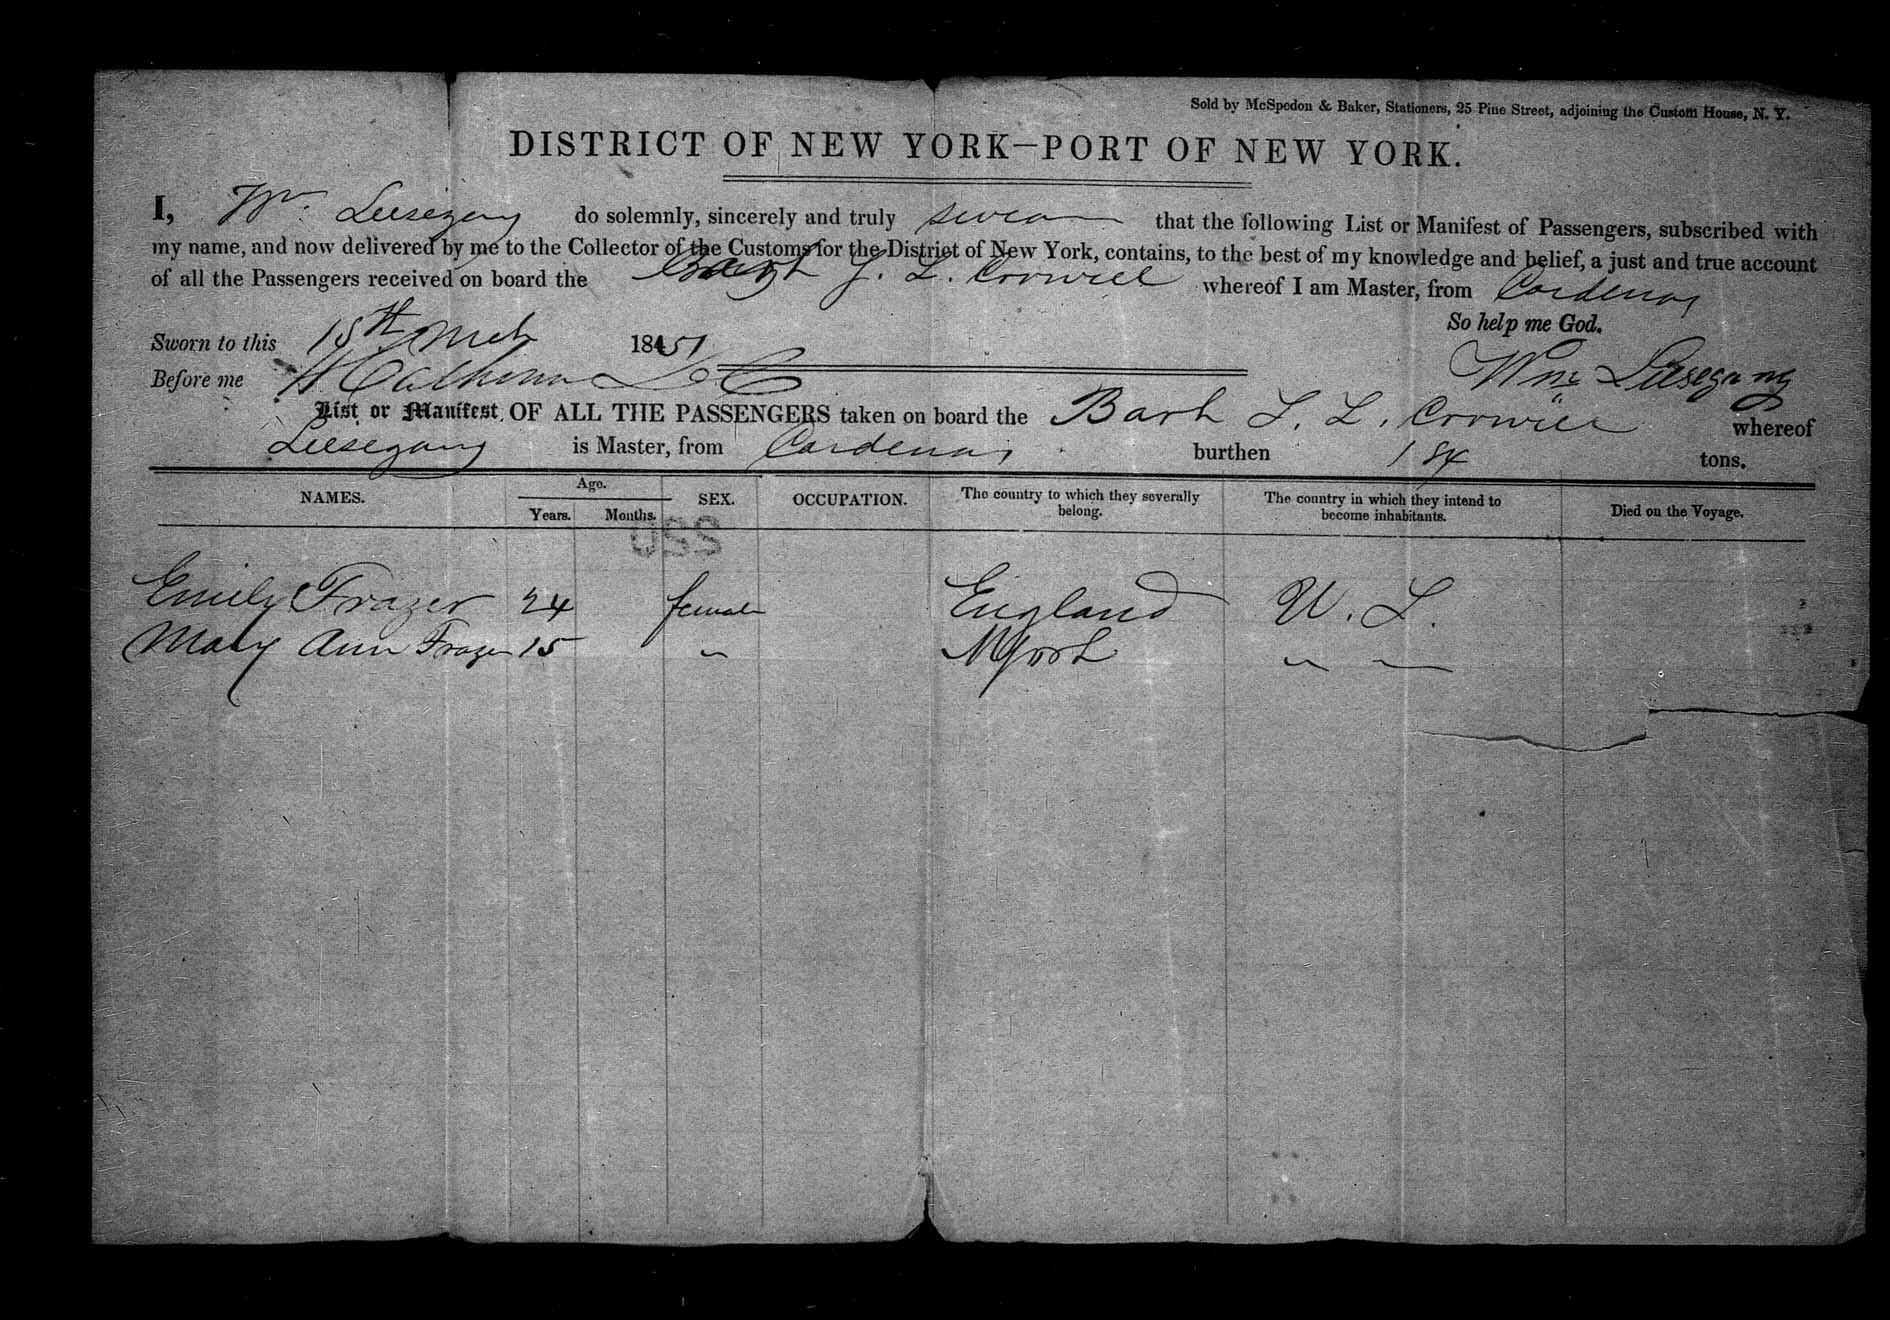 Sold by McSpedon & Baker, Stationers, 25 Pine Street, adjoining the Custom House, N. Y.
DISTRICT OF NEW YORK—PORT OF NEW YORK.
I, Wm. Leesegang do solemnly, sincerely and truly swear that the following List or Manifest of Passengers, subscribed with
my name, and now delivered by me to the Collector of the Customs for the District of New York, contains, to the best of my knowledge and belief, a just and true account
of all the Passengers received on board the L. L. whereof I am Master, from Cardenas
So help me God.
Sworn to this 15th 1851
Before me Wm Leesegang
List or Manifest, OF ALL THE PASSENGERS taken on board the Bark L. L. whereof
Leesegang is Master, from Cardenas burthen 184 tons.
NAMES. Age. SEX. OCCUPATION. The country to which they severally belong. The country in which they intend to become inhabitants. Died on the Voyage.
Years. Months.
Emily Frazer 24 female England U. S.
Mary Ann Frazer 15 " N York " "